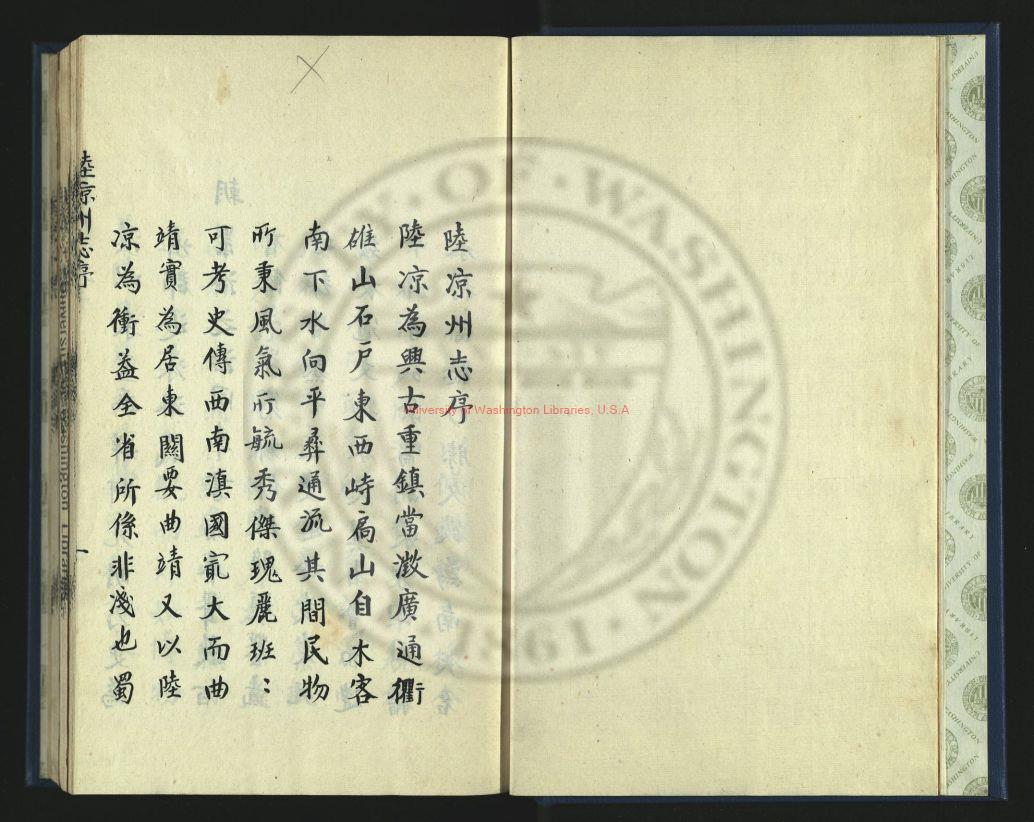 陸凉州志序
陸凉為興古重鎮當澂廣通衢
雄山石戸東西峙扃山自木客
南下水向平彞通流其間民物
所秉風氣所毓秀傑瑰麗班〻
可考史傳西南滇國㝡大而曲
靖實為居東闗要曲靖又以陸
凉為衝益全省所係非淺也蜀
陸凉州志序
一
University of Washington Libraries, U.S.A
UNIVERSITY OF WASHINGTON
1861